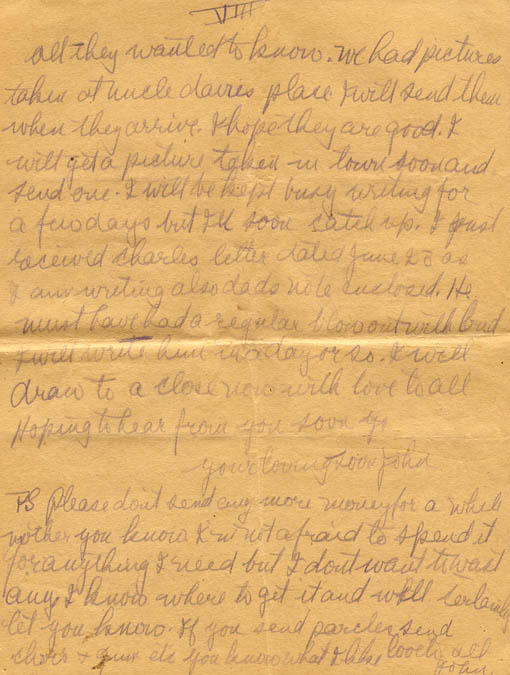 VIII
all they wanted to know. We had pictures
taken at uncle davies place I will send them
when they arrive. I hope they are good. I
will get a picture taken in town soon and
send one. I will be kept busy writing for
a few days but I'll soon catch up. I just
received charles letter dated June 25 as
I am writing also dads note enclosed. He
must have had a regular blowout with
I will write him in a day or so. I will
draw to a close now with love to all
Hoping to hear from you soon
your loving soon John
PS Please dont send any more money for a while
mother you know I'm not afraid to spend it
for anything I need but I dont want to wast
any I know where to get it and will certainly
let you know. If you send parcles send
& gum etc you know what I like
John.